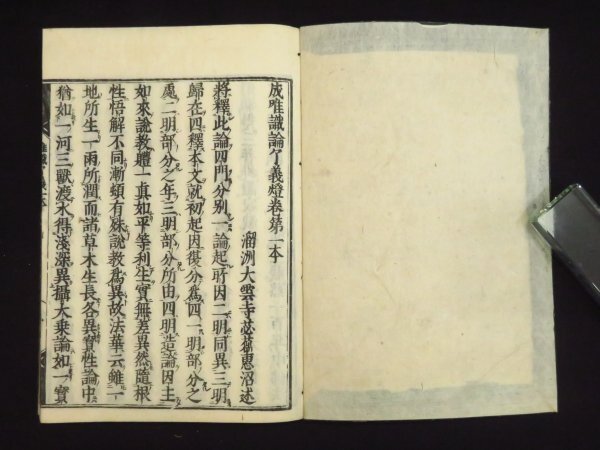 成唯識論了義燈卷第一本
溜洲大雲寺苾蒭惠沼述
將釋此論四門分別一論起所因二明同異三明
歸在四釋本文就初起因復分爲四一明部分之
處二明部分之年三明部分所由四明造論因主
如來說教體一真如平等利生實無差異然隨根
性悟解不同漸頓有殊說教爲異故法華云雖一
地所生一雨所潤而諸草木生長各異實性論中
猶如一河三獸渡水得淺深異攝大乘論如一寶